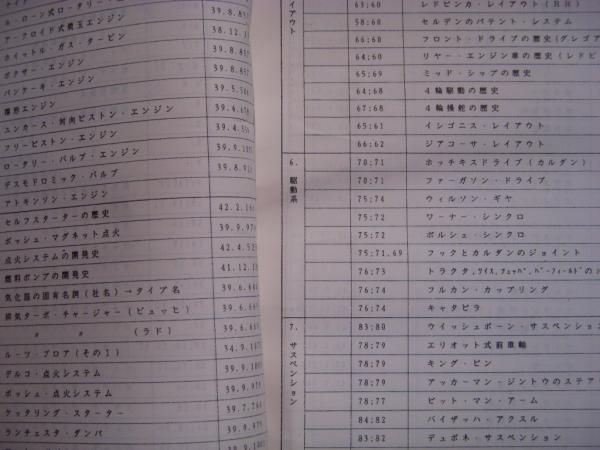 ル・ローン式ロータリー・エンジン 39.8.85
アークロイド式焼玉エンジン 38.12.
ホイットル・ガス・タービン 39.8.857
ボクサー・エンジン 39.8.857
パンケーキ・エンジン
ユンカース・対向ピストン・エンジン 39.6.678
フリーピストン・エンジン
ロータリー・バルブ・エンジン
デスモドロミック・バルブ
アトキンソン・エンジン
セルフスターターの歴史 42.2.
ボッシュ・マグネット点火 39.9.97
点火システムの開発史 42.4.52
燃料ポンプの開発史 41.12.
気化器の固有名詞(社名)→タイプ名 39.6.66
排気ターボ・チャージャー(ビュッヒ) 39.6.66
〃 〃 (ラド) 39.6.66
ルーツ・ブロア(その1) 34.9.
デルコ・点火システム 39.9.
ボッシュ・点火システム 39.9.97
ケッタリング・スターター 39.7.76
ランチェスタ・ダンパ 39.9.97
イアウト
63;60 レドビンカ・レイアウト(RR)
58;60 セルデンのパテント・システム
66;60 フロント・ドライブの歴史(グレゴア
64;60 リヤー・エンジン車の歴史(レドビ
65;69 ミッド・シップの歴史
64;68 4輪駆動の歴史
67;68 4輪操舵の歴史
65;61 イシゴニス・レイアウト
66;62 ジアコーサ・レイアウト
6. 駆動系
70;71 ホッチキスドライブ(カルダン)
70;71 ファーガソン・ドライブ
75;74 ウィルソン・ギヤ
75;72 ワーナー・シンクロ
75;72 ポルシェ・シンクロ
75;71.69 フックとカルダンのジョイント
76;73 トラクタ,ワイス,ツェッパ,バーフィールドの
76;74 フルカン・カップリング
76;74 キャタピラ
7. サスペンション
83;80 ウイッシュボーン・サスペンション
78;79 エリオット式前車軸
78;79 キング・ピン
78;79 アッカーマン・ジントウのステア
78;77 ピット・マン・アーム
84;82 バイザッハ・アクスル
83;82 デュボネ・サスペンション